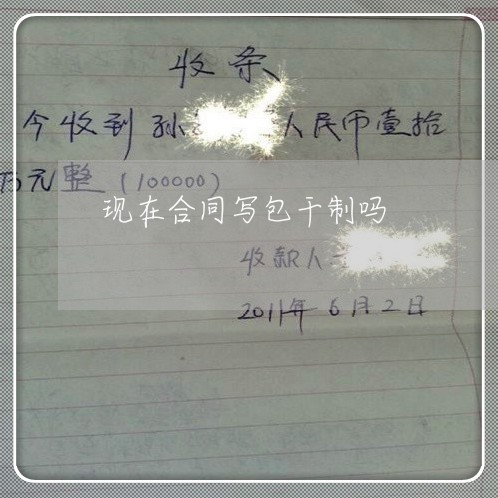 收条
今收到孙 人民币壹拾
万元整（100000）
现在合同写包干制吗
收款人
2011年6月2日